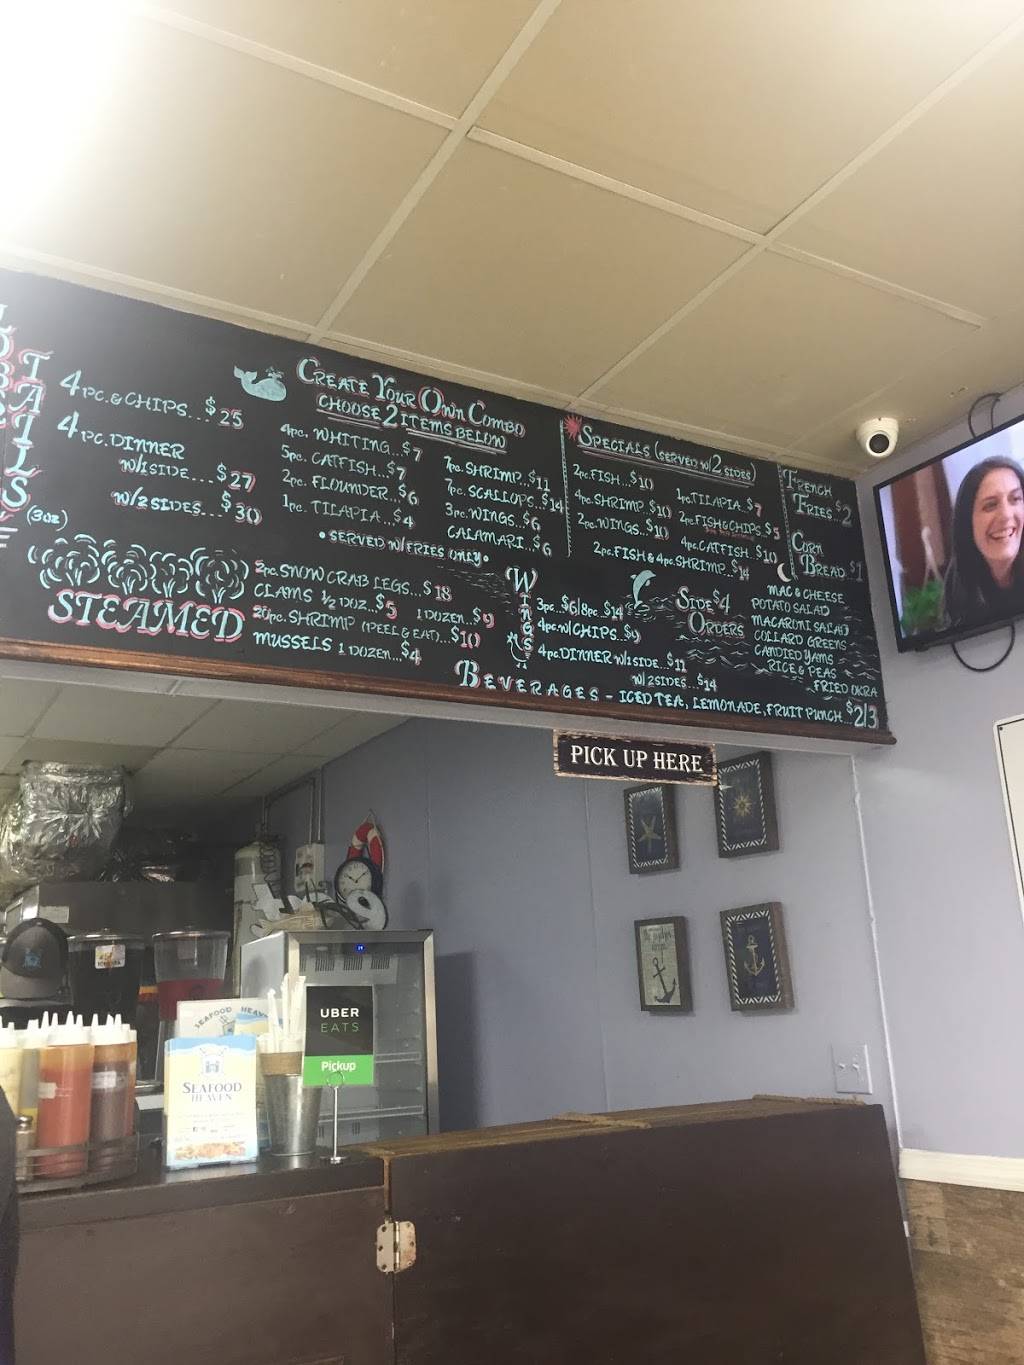 LOBSTER TAILS
4pc. & CHIPS...$25
4pc. DINNER
W/1 SIDE....$27
W/2 SIDES...$30
(3oz)
CREATE YOUR OWN COMBO
CHOOSE 2 ITEMS BELOW
4pc. WHITING...$7
5pc. CATFISH...$7
2pc. FLOUNDER..$6
1pc. TILAPIA...$4
7pc. SHRIMP...$11
7pc. SCALLOPS..$14
3pc. WINGS..$6
CALAMARI...$6
• SERVED W/FRIES ONLY •
SPECIALS (SERVED W/2 SIDES)
2pc. FISH...$10
4pc. SHRIMP..$10
2pc. WINGS...$10
1pc TILAPIA..$7
2pc. FISH & CHIPS.$5
4pc. CATFISH...$10
2pc. FISH & 4pc. SHRIMP...$14
FRENCH
FRIES..$2
CORN
BREAD..$1
STEAMED
2pc. SNOW CRAB LEGS...$18
CLAMS ½ DOZ...$5 1 DOZEN..$9
20pc. SHRIMP (PEEL & EAT)...$10
MUSSELS 1 DOZEN...$4
WINGS
3pc...$6/8pc. $14
4pc w/ CHIPS..$9
4pc. DINNER W/1 SIDE...$11
W/ 2 SIDES...$14
SIDE $4
ORDERS
MAC & CHEESE
POTATO SALAD
MACARONI SALAD
COLLARD GREENS
CANDIED YAMS
RICE & PEAS
FRIED OKRA
BEVERAGES - ICED TEA, LEMONADE, FRUIT PUNCH...$2/3
PICK UP HERE
UBER
EATS
Pickup
SEAFOOD HEAVEN
SEAFOOD
HEAVEN